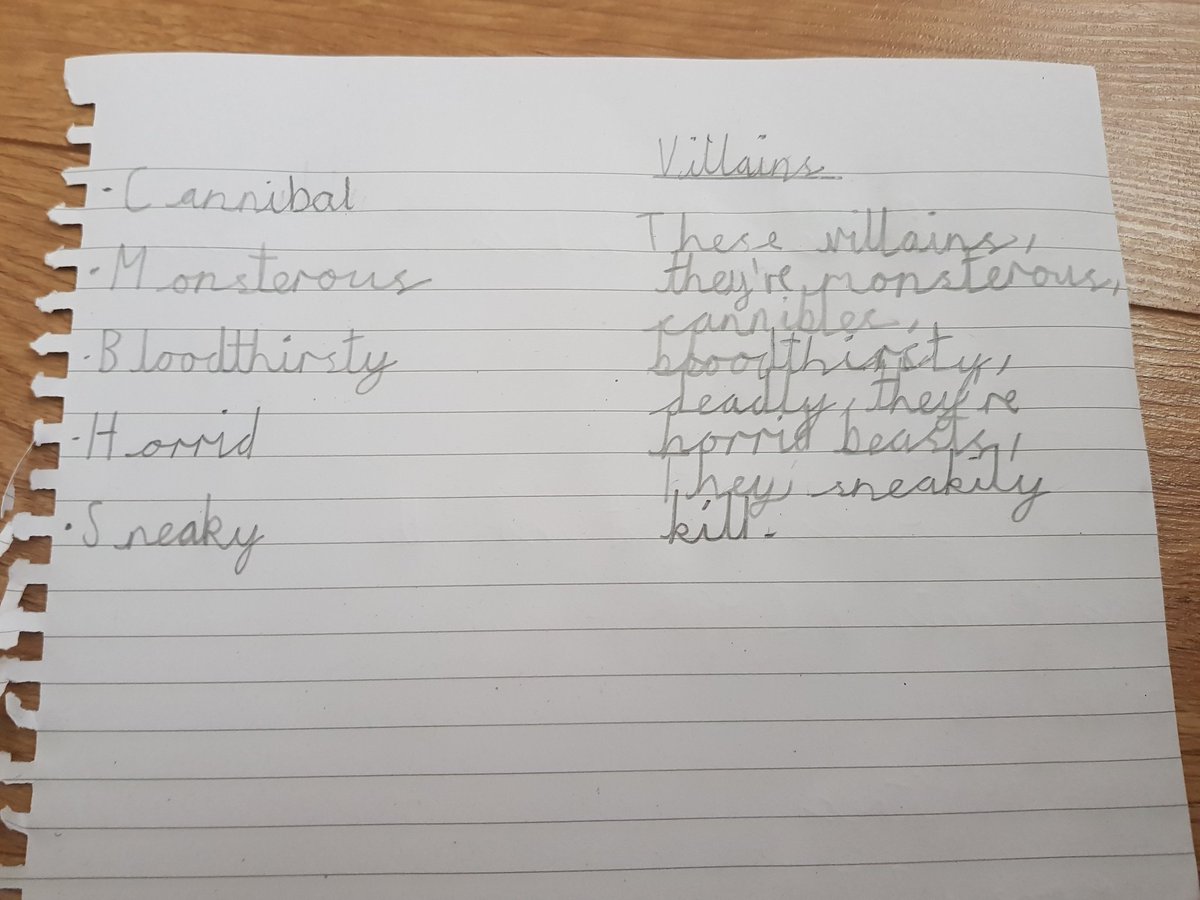 ·Cannibal
·Monsterous
·Bloodthirsty
·Horrid
·Sneaky
Villains
These villains,
they're monsterous,
cannibles,
bloodthirsty,
deadly, they're
horrid beasts,
They sneakily
kill.